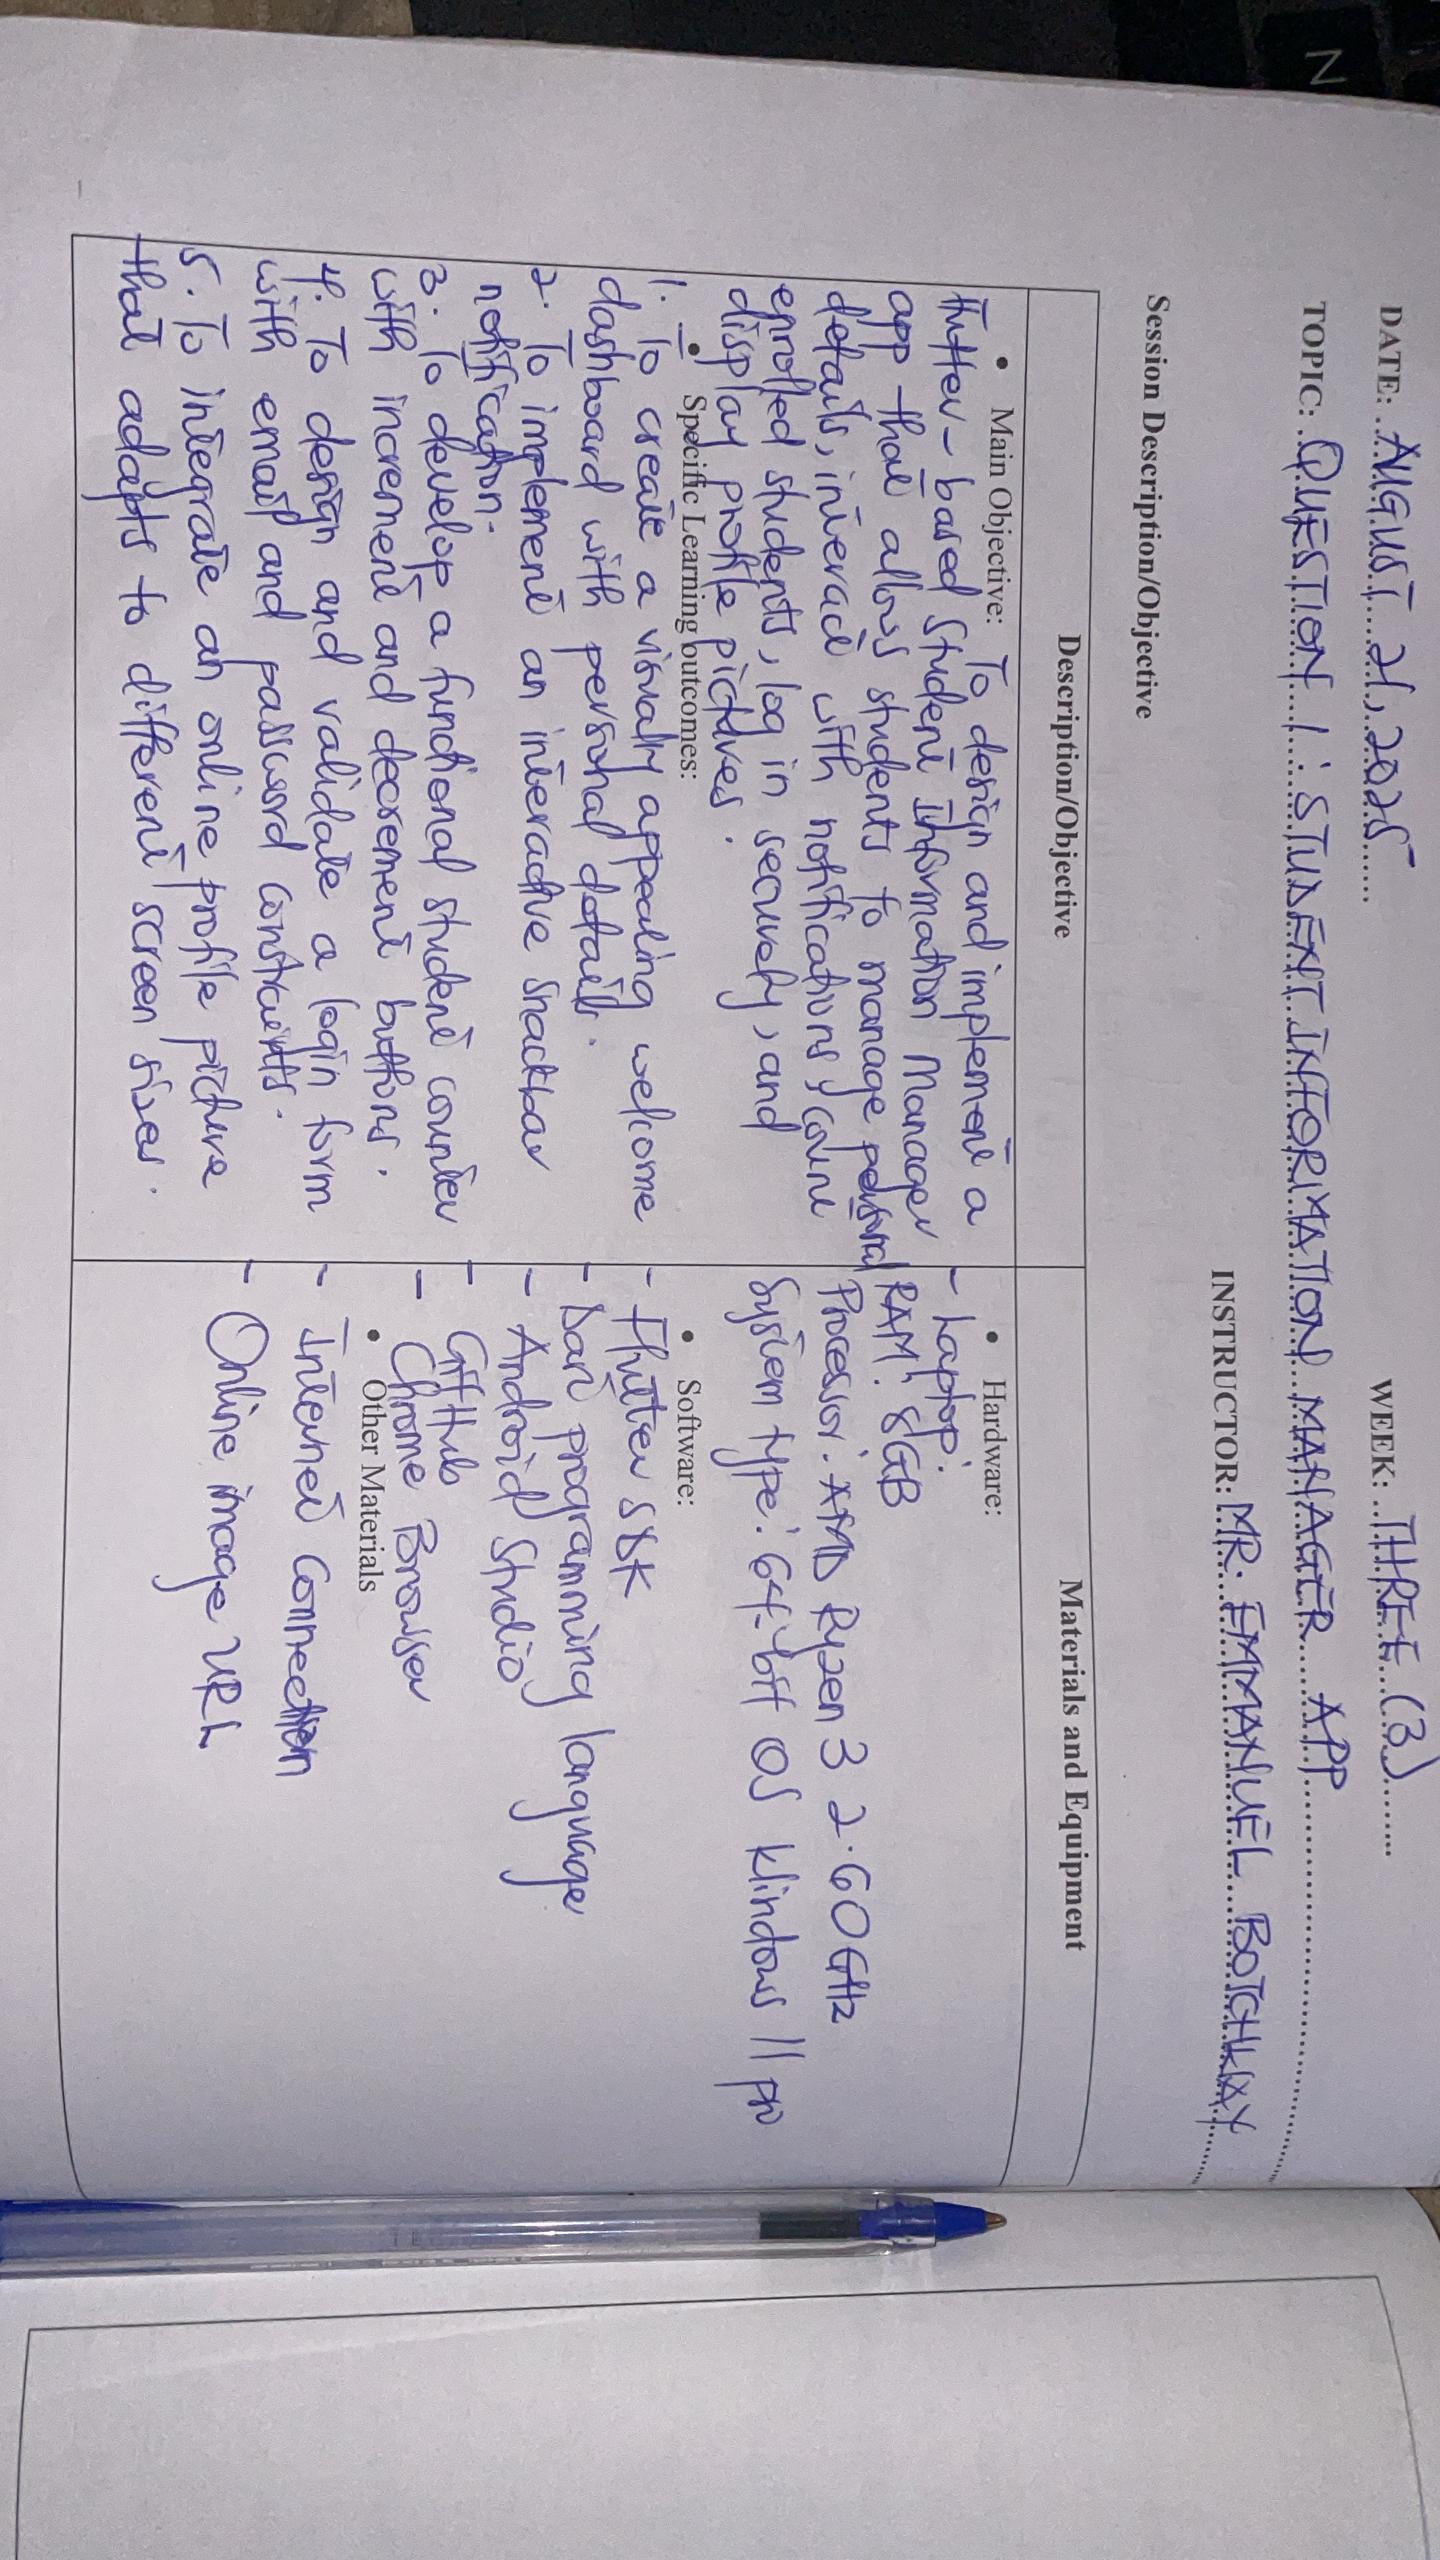 DATE: AUGUST 21, 2025
WEEK: THREE (3)
TOPIC: QUESTION 1: STUDENT INFORMATION MANAGER APP
INSTRUCTOR: MR. EMMANUEL BOTCHWAY
Session Description/Objective
Description/Objective
• Main Objective: To design and implement a
Flutter-based Student Information Manager
app that allows students to manage personal
details, interact with notifications, count
enrolled students, log in securely, and
display profile pictures.
• Specific Learning outcomes:
1. To create a visually appealing welcome
dashboard with personal details.
2. To implement an interactive Snackbar
notification.
3. To develop a functional student counter
with increment and decrement buttons.
4. To design and validate a login form
with email and password constraints.
5. To integrate an online profile picture
that adapts to different screen sizes.
Materials and Equipment
• Hardware:
- Laptop:
RAM: 8GB
Processor: AMD Ryzen 3 2.60GHz
System type: 64-bit OS Windows 11 pro
• Software:
- Flutter SDK
- Dart programming language
- Android Studio
- GitHub
- Chrome Browser
• Other Materials
- Internet Connection
- Online image URL
N